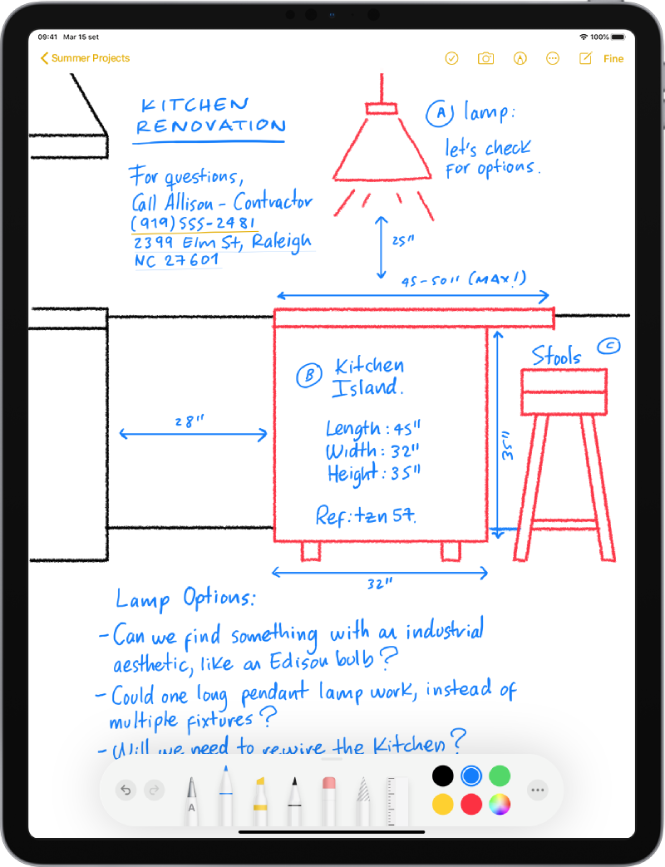 09:41 Mar 15 set
100%
Summer Projects
Fine
KITCHEN
RENOVATION
For questions,
Call Allison - Contractor
(919)555-2481
2399 Elm St, Raleigh
NC 27601
A lamp:
let's check
for options.
25"
45-50" (MAX!)
B Kitchen
Island.
Length: 45"
Width: 32"
Height: 35"
Ref: tzn 57.
28"
35"
Stools C
32"
Lamp Options:
- Can we find something with an industrial
aesthetic, like an Edison bulb?
- Could one long pendant lamp work, instead of
multiple fixtures?
- Will we need to rewire the Kitchen?
A